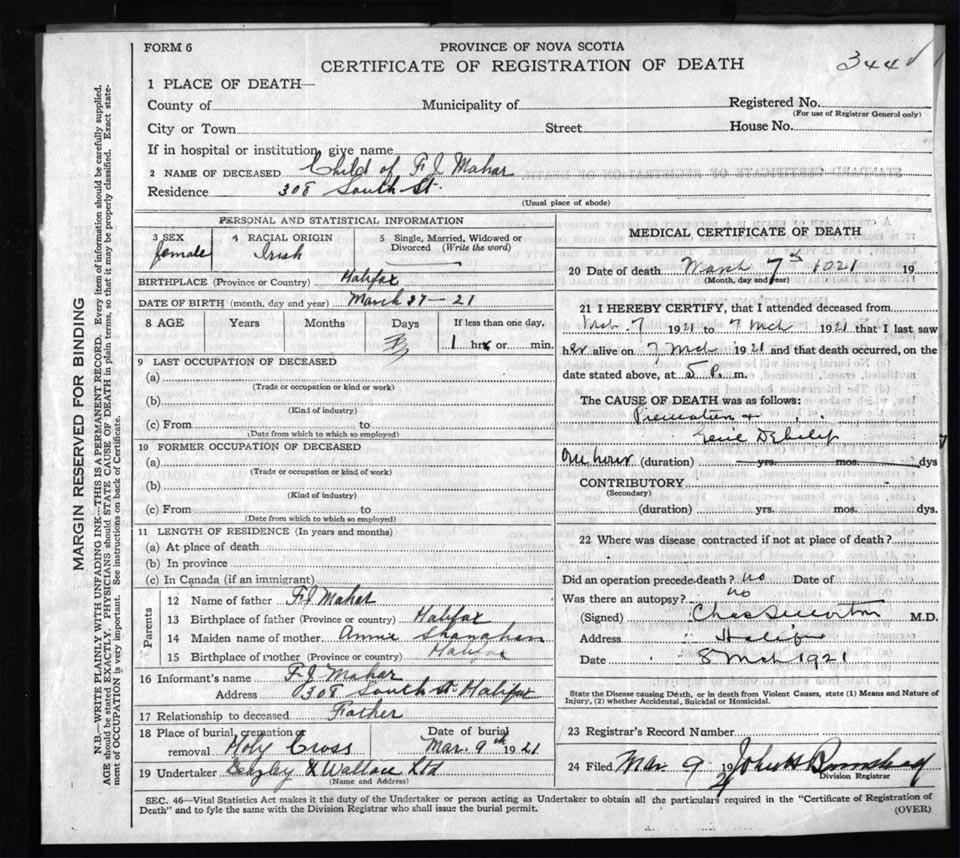 FORM 6
PROVINCE OF NOVA SCOTIA
CERTIFICATE OF REGISTRATION OF DEATH
344
1 PLACE OF DEATH—
County of Municipality of Registered No.
(For use of Registrar General only)
City or Town Street House No.
If in hospital or institution, give name
2 NAME OF DECEASED Child of F J Mahar
Residence 308 South St.
(Usual place of abode)
PERSONAL AND STATISTICAL INFORMATION
3 SEX 4 RACIAL ORIGIN 5 Single, Married, Widowed or Divorced (Write the word)
female Irish
BIRTHPLACE (Province or Country) Halifax
DATE OF BIRTH (month, day and year) March 27—21
8 AGE Years Months Days If less than one day,
1 hrs or min.
9 LAST OCCUPATION OF DECEASED
(a)
(Trade or occupation or kind or work)
(b)
(Kind of industry)
(c) From to
(Date from which to which so employed)
10 FORMER OCCUPATION OF DECEASED
(a)
(Trade or occupation or kind of work)
(b)
(Kind of industry)
(c) From to
(Date from which to which so employed)
11 LENGTH OF RESIDENCE (In years and months)
(a) At place of death
(b) In province
(c) In Canada (if an immigrant)
Parents
12 Name of father F J Mahar
13 Birthplace of father (Province or country) Halifax
14 Maiden name of mother Annie Shanahan
15 Birthplace of mother (Province or country) Halifax
16 Informant's name F J Mahar
Address 308 South St. Halifax
17 Relationship to deceased Father
18 Place of burial, cremation or removal Holy Cross Date of burial Mar. 9th 1921
19 Undertaker & Wallace Ltd
(Name and Address)
MEDICAL CERTIFICATE OF DEATH
20 Date of death March 7th 1921 19
(Month, day and year)
21 I HEREBY CERTIFY, that I attended deceased from
Mch. 7 1921 to 7 Mch 1921 that I last saw
her alive on 7 Mch 1921 and that death occurred, on the
date stated above, at 5 P. m.
The CAUSE OF DEATH was as follows:
One hour (duration) yrs. mos. dys
CONTRIBUTORY
(Secondary)
(duration) yrs. mos. dys.
22 Where was disease contracted if not at place of death?
Did an operation precede death? no Date of
Was there an autopsy? no
(Signed) M.D.
Address Halifax
Date 8 Mch 1921
State the Disease causing Death, or in death from Violent Causes, state (1) Means and Nature of
Injury, (2) whether Accidental, Suicidal or Homicidal.
23 Registrar's Record Number
24 Filed Mar 9 1921 John H
Division Registrar
SEC. 46—Vital Statistics Act makes it the duty of the Undertaker or person acting as Undertaker to obtain all the particulars required in the "Certificate of Registration of
Death" and to fyle the same with the Division Registrar who shall issue the burial permit. (OVER)
MARGIN RESERVED FOR BINDING
N.B.—WRITE PLAINLY WITH UNFADING INK—THIS IS A PERMANENT RECORD. Every item of information should be carefully supplied.
AGE should be stated EXACTLY. PHYSICIANS should STATE CAUSE OF DEATH in plain terms, so that it may be properly classified. Exact state-
ment of OCCUPATION is very important. See instructions on back of Certificate.